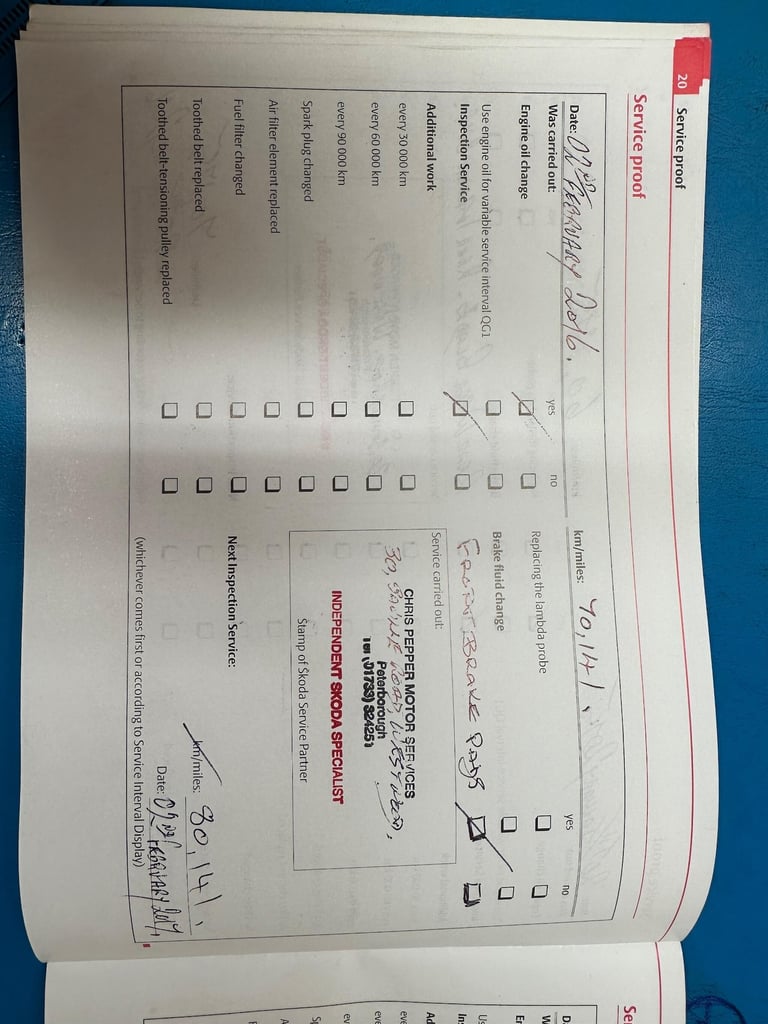 20 Service proof
Service proof
Date: 02nd FEBRUARY 2016.
km/miles: 70,141.
Was carried out:
yes
no
yes
no
Engine oil change
Replacing the lambda probe
Use engine oil for variable service interval QG1
Brake fluid change
Inspection Service
FRONT BRAKE PADS
Additional work
Service carried out:
every 30 000 km
every 60 000 km
every 90 000 km
CHRIS PEPPER MOTOR SERVICES
Peterborough
Tel (01733) 324251
INDEPENDENT SKODA SPECIALIST
Spark plug changed
Stamp of Škoda Service Partner
Air filter element replaced
Fuel filter changed
Next Inspection Service:
Toothed belt replaced
km/miles: 80,141.
Toothed belt-tensioning pulley replaced
Date: 02nd FEBRUARY 2017.
(whichever comes first or according to Service Interval Display)